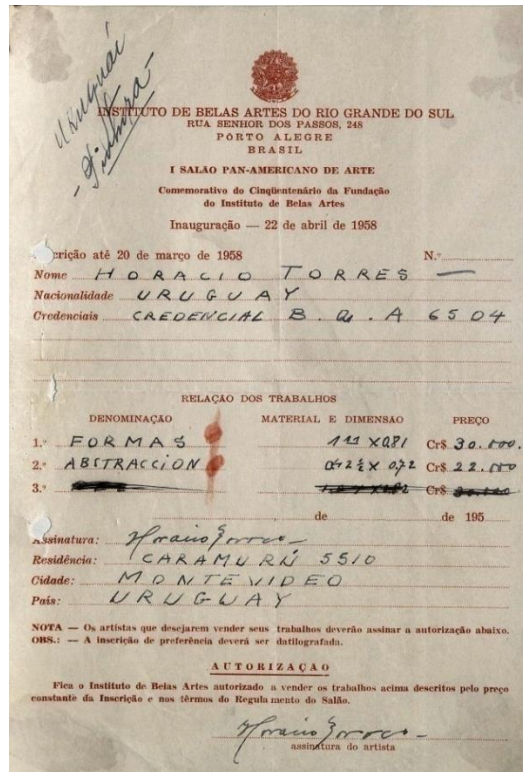 Uruguái
- Pintura -
INSTITUTO DE BELAS ARTES DO RIO GRANDE DO SUL
RUA SENHOR DOS PASSOS, 248
PÔRTO ALEGRE
BRASIL
I SALÃO PAN-AMERICANO DE ARTE
Comemorativo do Cinqüentenário da Fundação
do Instituto de Belas Artes
Inauguração — 22 de abril de 1958
crição até 20 de março de 1958 N.º
Nome HORACIO TORRES —
Nacionalidade URUGUAY
Credenciais CREDENCIAL B. Q. A 6504
RELAÇÃO DOS TRABALHOS
DENOMINAÇÃO MATERIAL E DIMENSÃO PREÇO
1.º FORMAS 1 11 X 0.81 Cr$ 30.000.
2.º ABSTRACCION 0.42 ½ X 0,72 Cr$ 22.000
3.º Cr$
de de 195
Assinatura: Horacio Torres
Residência: CARAMURÚ 5510
Cidade: MONTEVIDEO
País: URUGUAY
NOTA — Os artistas que desejarem vender seus trabalhos deverão assinar a autorização abaixo.
OBS.: — A inscrição de preferência deverá ser datilografada.
AUTORIZAÇÃO
Fica o Instituto de Belas Artes autorizado a vender os trabalhos acima descritos pelo preço
constante da Inscrição e nos têrmos do Regulamento do Salão.
Horacio Torres
assinatura do artista